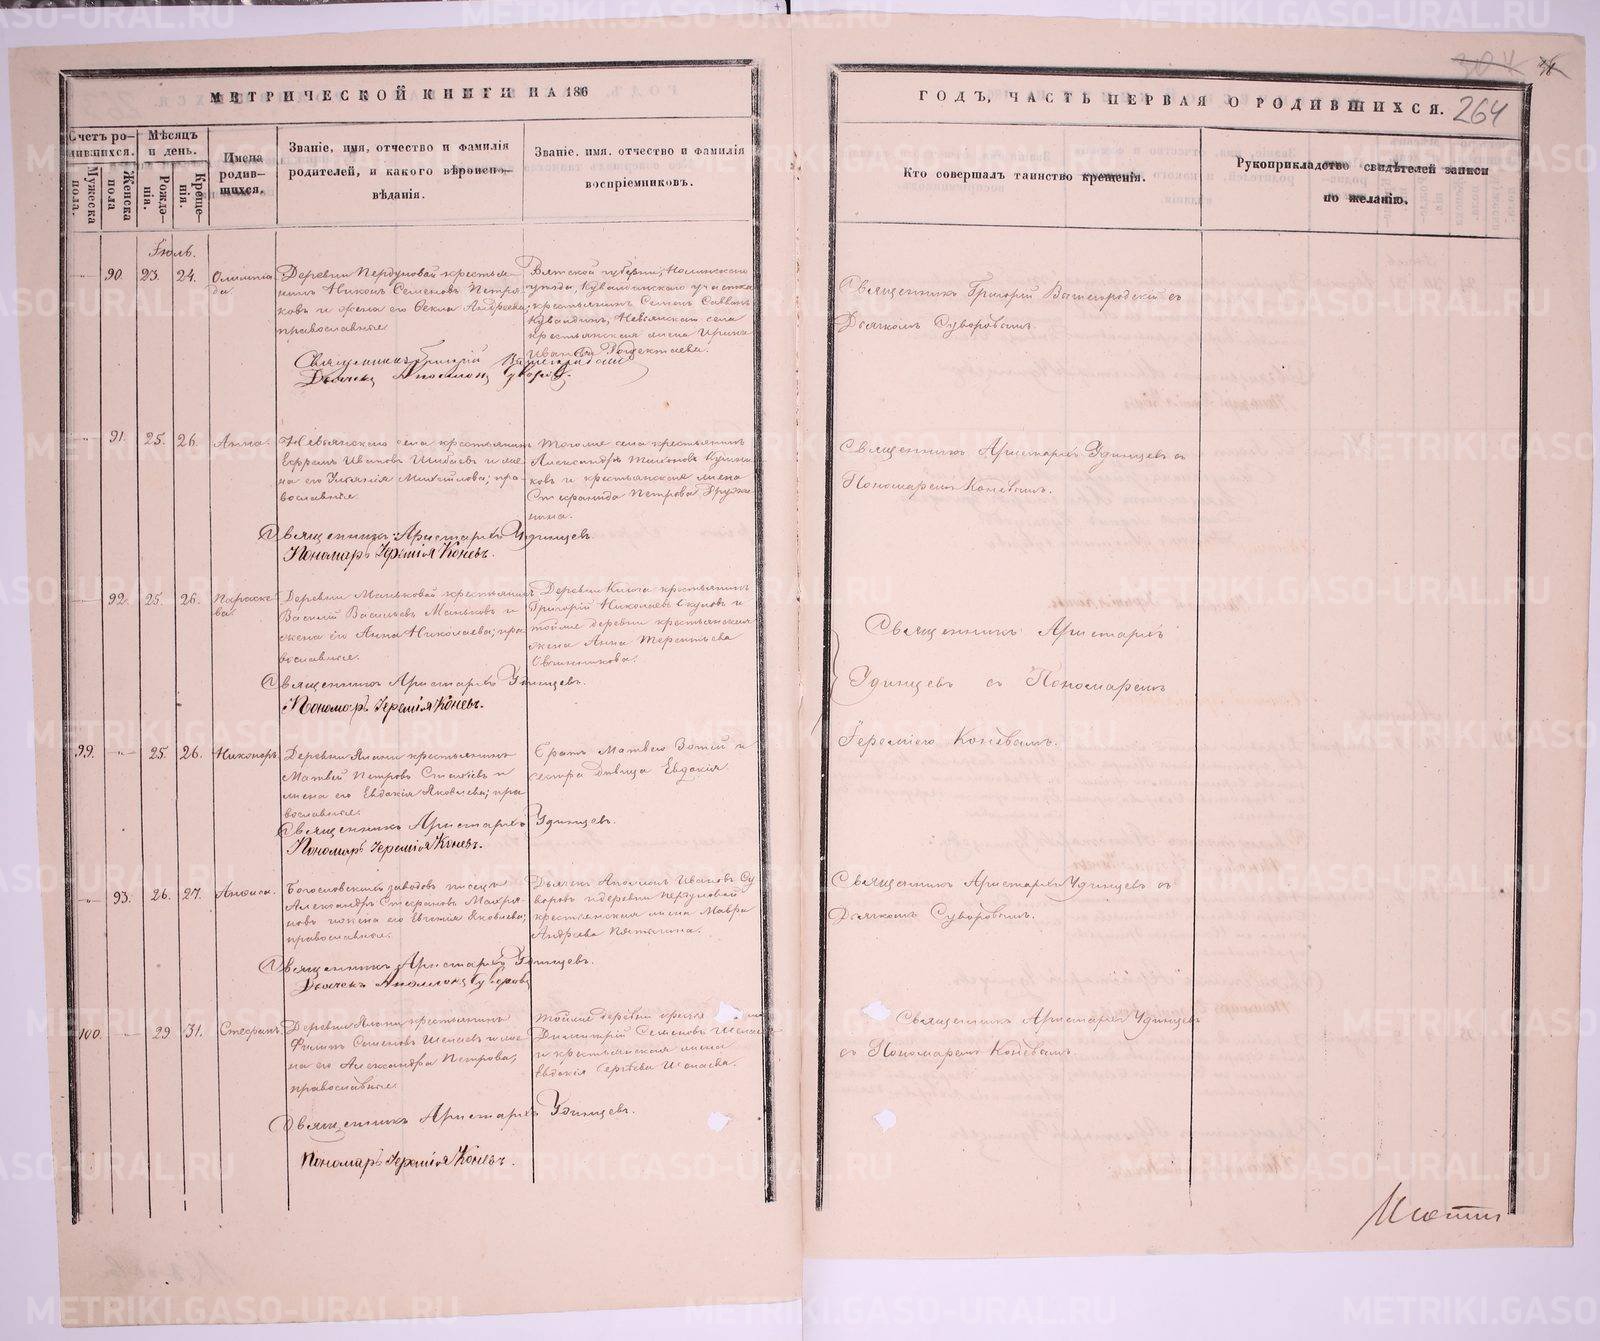 МЕТРИЧЕСКОЙ КНИГИ НА 186
Счетъ ро-
дившихся.
Мужеска
пола.
Женска
пола
Мѣсяцъ
и день.
Рожде-
нія.
Креще-
нія.
Имена
родив-
шихся.
Званіе, имя, отчество и фамилія
родителей, и какого вѣроиспо-
вѣданія.
Званіе, имя, отчество и фамилія
воспріемниковъ.
Іюль.
90. 23. 24. Олимпіа
да.
Деревни Пердуновой крестья-
нинъ Никонъ Семеновъ Петро-
ковъ и жена его Фекла Андреева;
православные
Вятской губерніи, Нолинскаго
уѣзда, участка
крестьянинъ Семенъ Саввинъ
Невьянскаго села
крестьянская жена Ирина
Иванова
Священникъ Григорій
Дьячекъ Аполлонъ Суворовъ.
91. 25. 26. Анна.
Невьянскаго села крестьянинъ
Ефремъ Ивановъ Шибаевъ и же-
на его Михайлова; пра-
вославные.
Тогоже села крестьянинъ
Александръ
ковъ и крестьянская жена
Стефанида Петрова Пруж
нина.
Священникъ Аристархъ Удинцевъ
Пономарь Іеремія Коневъ.
92. 25. 26. Параске
ва.
Деревни Маньковой крестьянинъ
Василій Васильевъ Маньковъ и
жена его Анна Николаева; пра-
вославные.
Деревни Ключа крестьянинъ
Григорій Николаевъ и
тойже деревни крестьянская
жена Анна Терентьева
Овчинникова.
Священникъ Аристархъ Удинцевъ.
Пономарь Іеремія Коневъ.
99. 25. 26. Никоноръ
Деревни Ялани крестьянинъ
Матвей Петровъ и
жена его Евдокія Яковлева; пра
вославные.
Братъ Матвея Зотій и
сестра дѣвица Евдокія
Священникъ Аристархъ Удинцевъ.
Пономарь Іеремія Коневъ.
93. 26. 27. Анфиса.
Богословскихъ заводовъ писецъ
Александръ Стефановъ
новъ и жена его Евгенія Яковлева;
православные.
Дьячекъ Аполлонъ Ивановъ Су
воровъ и деревни Пердуновой
крестьянская жена Мавра
Андреева Пятыгина.
Священникъ Аристархъ Удинцевъ.
Дьячекъ Аполлонъ Суворовъ
100. 29 31. Стефанъ
Деревни Ялани крестьянинъ
Филипъ Семеновъ Шепаевъ и же
на его Александра Петрова;
православные
Тойже деревни
Димитрій Семеновъ
и крестьянская жена
Евдокія Сергѣева Шепаева.
Священникъ Аристархъ Удинцевъ.
Пономарь Іеремія Коневъ.
ГОДЪ, ЧАСТЬ ПЕРВАЯ О РОДИВШИХСЯ.
264
Кто совершалъ таинство крещенія.
Рукоприкладство свидѣтелей записи
по желанію.
Священникъ Григорій Вышегородскій съ
Дьячкомъ Суворовымъ.
Священникъ Аристархъ Удинцевъ съ
Пономаремъ Коневымъ.
Священникъ Аристархъ
Удинцевъ съ Пономаремъ
Іереміею Коневымъ.
Священникъ Аристархъ Удинцевъ съ
Дьячкомъ Суворовымъ.
Священникъ Аристархъ Удинцевъ
съ Пономаремъ Коневымъ.
METRIKI.GASO-URAL.RU